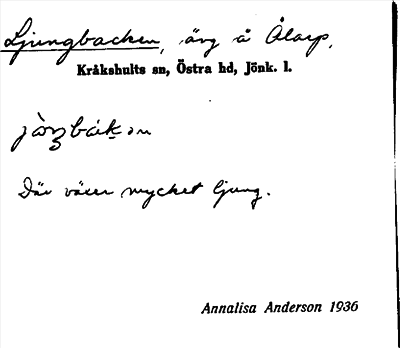 Ljungbacken, äng å Ålarp,
Kråkshults sn, Östra hd, Jönk. l.
Där växer mycket ljung.
Annalisa Anderson 1936